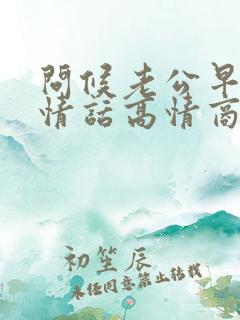 問候老公早
情話高情商
初笙辰
未经同意禁止转载